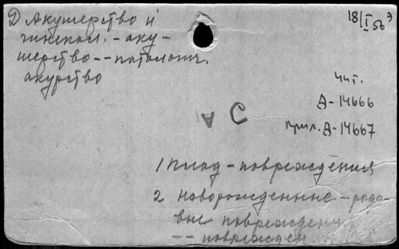 Д Акушерство и
гинекол. - аку-
шерство -- патолог.
акурство
18/I 56 э
чит.
Д-14666
прил. Д-14667
А С
1 Плод - повреждения
2 Новорожденные - родо-
вые повреждени
-- поврежден